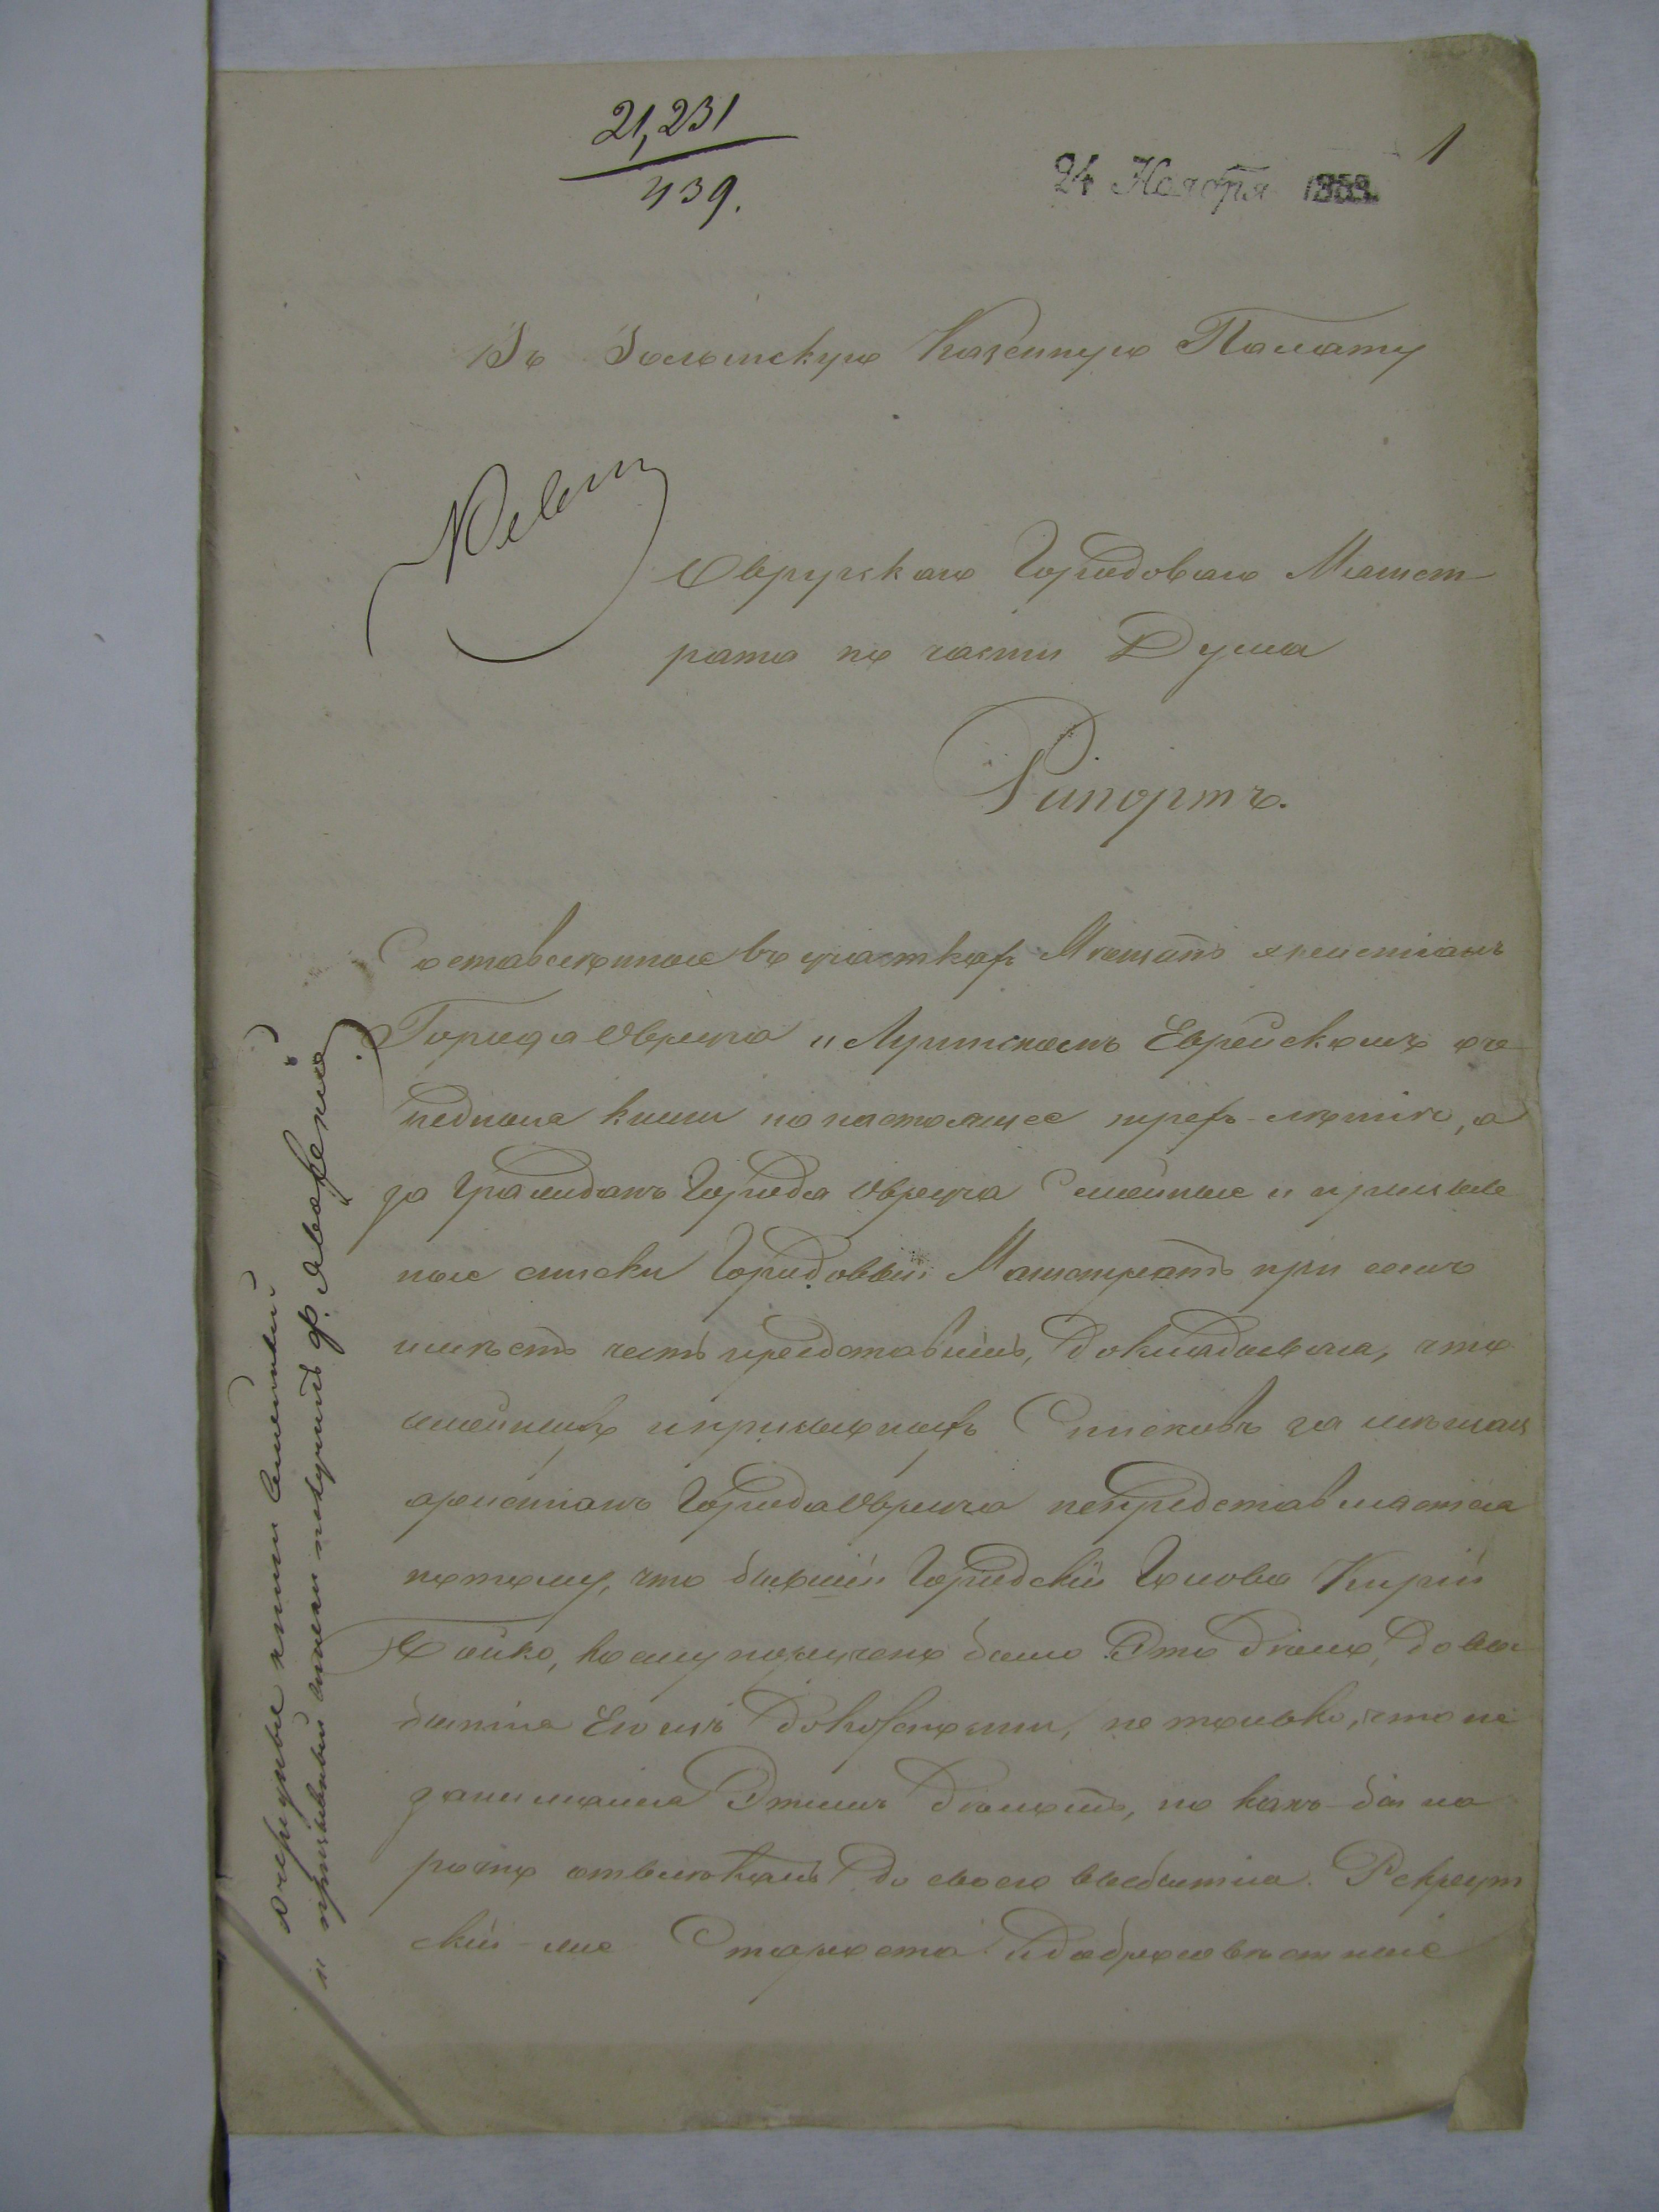 21,231
439.
24 Ноября 1859.
1
Въ Волынскую Казенную Палату
Овручскаго Городоваго Магист-
рата по части Думы
Рапортъ.
Составленные въ участкахъ Мещанъ христіанъ
Города Овруча и Еврейскомъ оче
редные книги по настоящее трехъ-летіе, а
за Гражданъ Города Овруча Семейные и призыв
ные списки Городовый Магистратъ при семъ
имеетъ честь представить, докладывая, что
семейныхъ и призывныхъ Списковъ за мещанъ
христіанъ Города Овруча непредставляется
потому, что бывшій Городскій Голова Кирій
Бойко, коему поручено было Это дело, до вы
бытія Его изъ должности, не только, что не
занимался Этимъ деломъ, но какъ-бы на
рочно отвлекалъ до своего выбытія. Рекрут
скій-же Староста и добросовестные
очередные книги
и призывный списки получилъ Ф. Яворскій